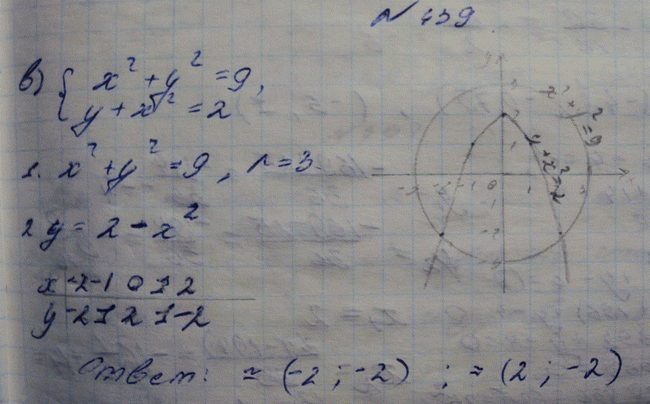 N 439.
в) { x² + y² = 9,
y + x² = 2
1. x² + y² = 9, r = 3
2 y = 2 - x²
x -2 -1 0 1 2
y -2 1 2 1 -2
Ответ: ≈ (-2 ; -2) ; ≈ (2 ; -2)
x² + y² = 9
y + x² = 2